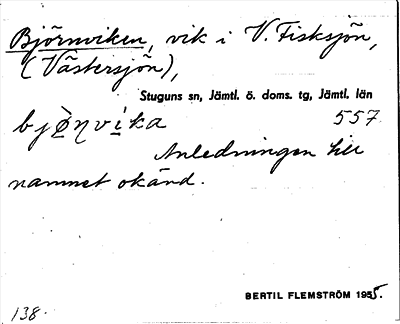 Björnviken, vik i V. Fisksjön,
(Västersjön),
Stuguns sn, Jämtl. ö. doms. tg, Jämtl. län
557
Anledningen till
namnet okänd.
BERTIL FLEMSTRÖM 1955.
138.